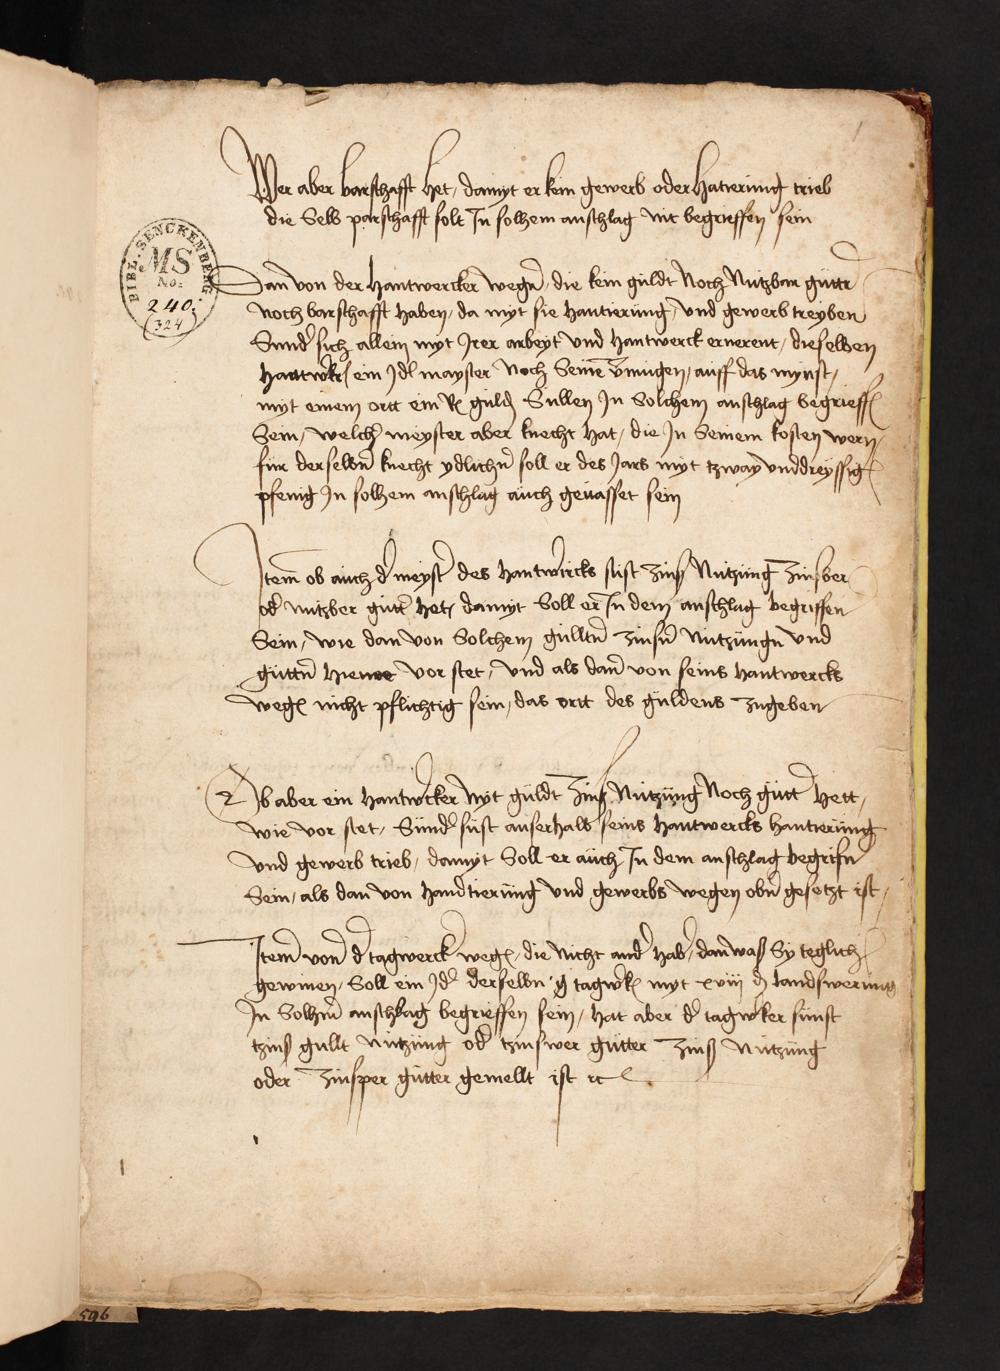 1
Wer aber barschafft het, damyt er kein gewerb oder Hatierung trieb
die Selb parschafft solt In solhem anschlag nit begrieffen sein
BIBL. SENCKENBERG
MS
No:
240.
(324)
Dan von der Hantwercker wegn, die kein guldt Noch Nutzbar güttr
noch barschafft haben, da myt sie Hantierung, und gewerb treyben
Sund sich allein myt Irer arbeyt und Hantwerck ernerent, dieselben
ein Idl mayster Noch Seine vmugen, auff das mynst,
myt einem ortt ein guld Sullen In Solchem anschlag begrieff
Sein, welch meyster aber knecht hat, die In Seinem kosten wern,
für derselbn knecht ydlichn soll er des Jars myt tzway unddreyssig
pfenig In solhem anschlag auch geuasset sein
Item ob auch d meystr des hantwircks sust zinß Nutzung zinsber
od nutzber gütt het, damyt Soll er In dem anschlag begriffen
Sein, wie dan von Solchem gülltn zinsn Nutzungn und
güttn vor stet, und als dan von seins hantwercks
weg nicht pflichtig sein, das ortt des guldens zugeben
Ob aber ein Hantwcker Nyt güldt zinß Nutzung Noch gütt Hett,
wie vor stet, Sund sust auserhalb seins Hantwercks hantierung
und gewerb trieb, damyt Soll er auch In dem anschlag begrifn
Sein, als dan von handtierung und gewerbs wegen obn gesetzt ist,
Item von d tagwerck weg, die Nicht and hab, dan waß Sy teglich
gewinen, Soll ein Id derselbn tagwk myt xviij landswerung
In Solhm anschlag begrieffen sein, hat aber d tagwker sunst
tzinß gullt Nutzung od tzinswer gütter zinß Nutzung
oder zinsper gütter gemellt ist rc
596